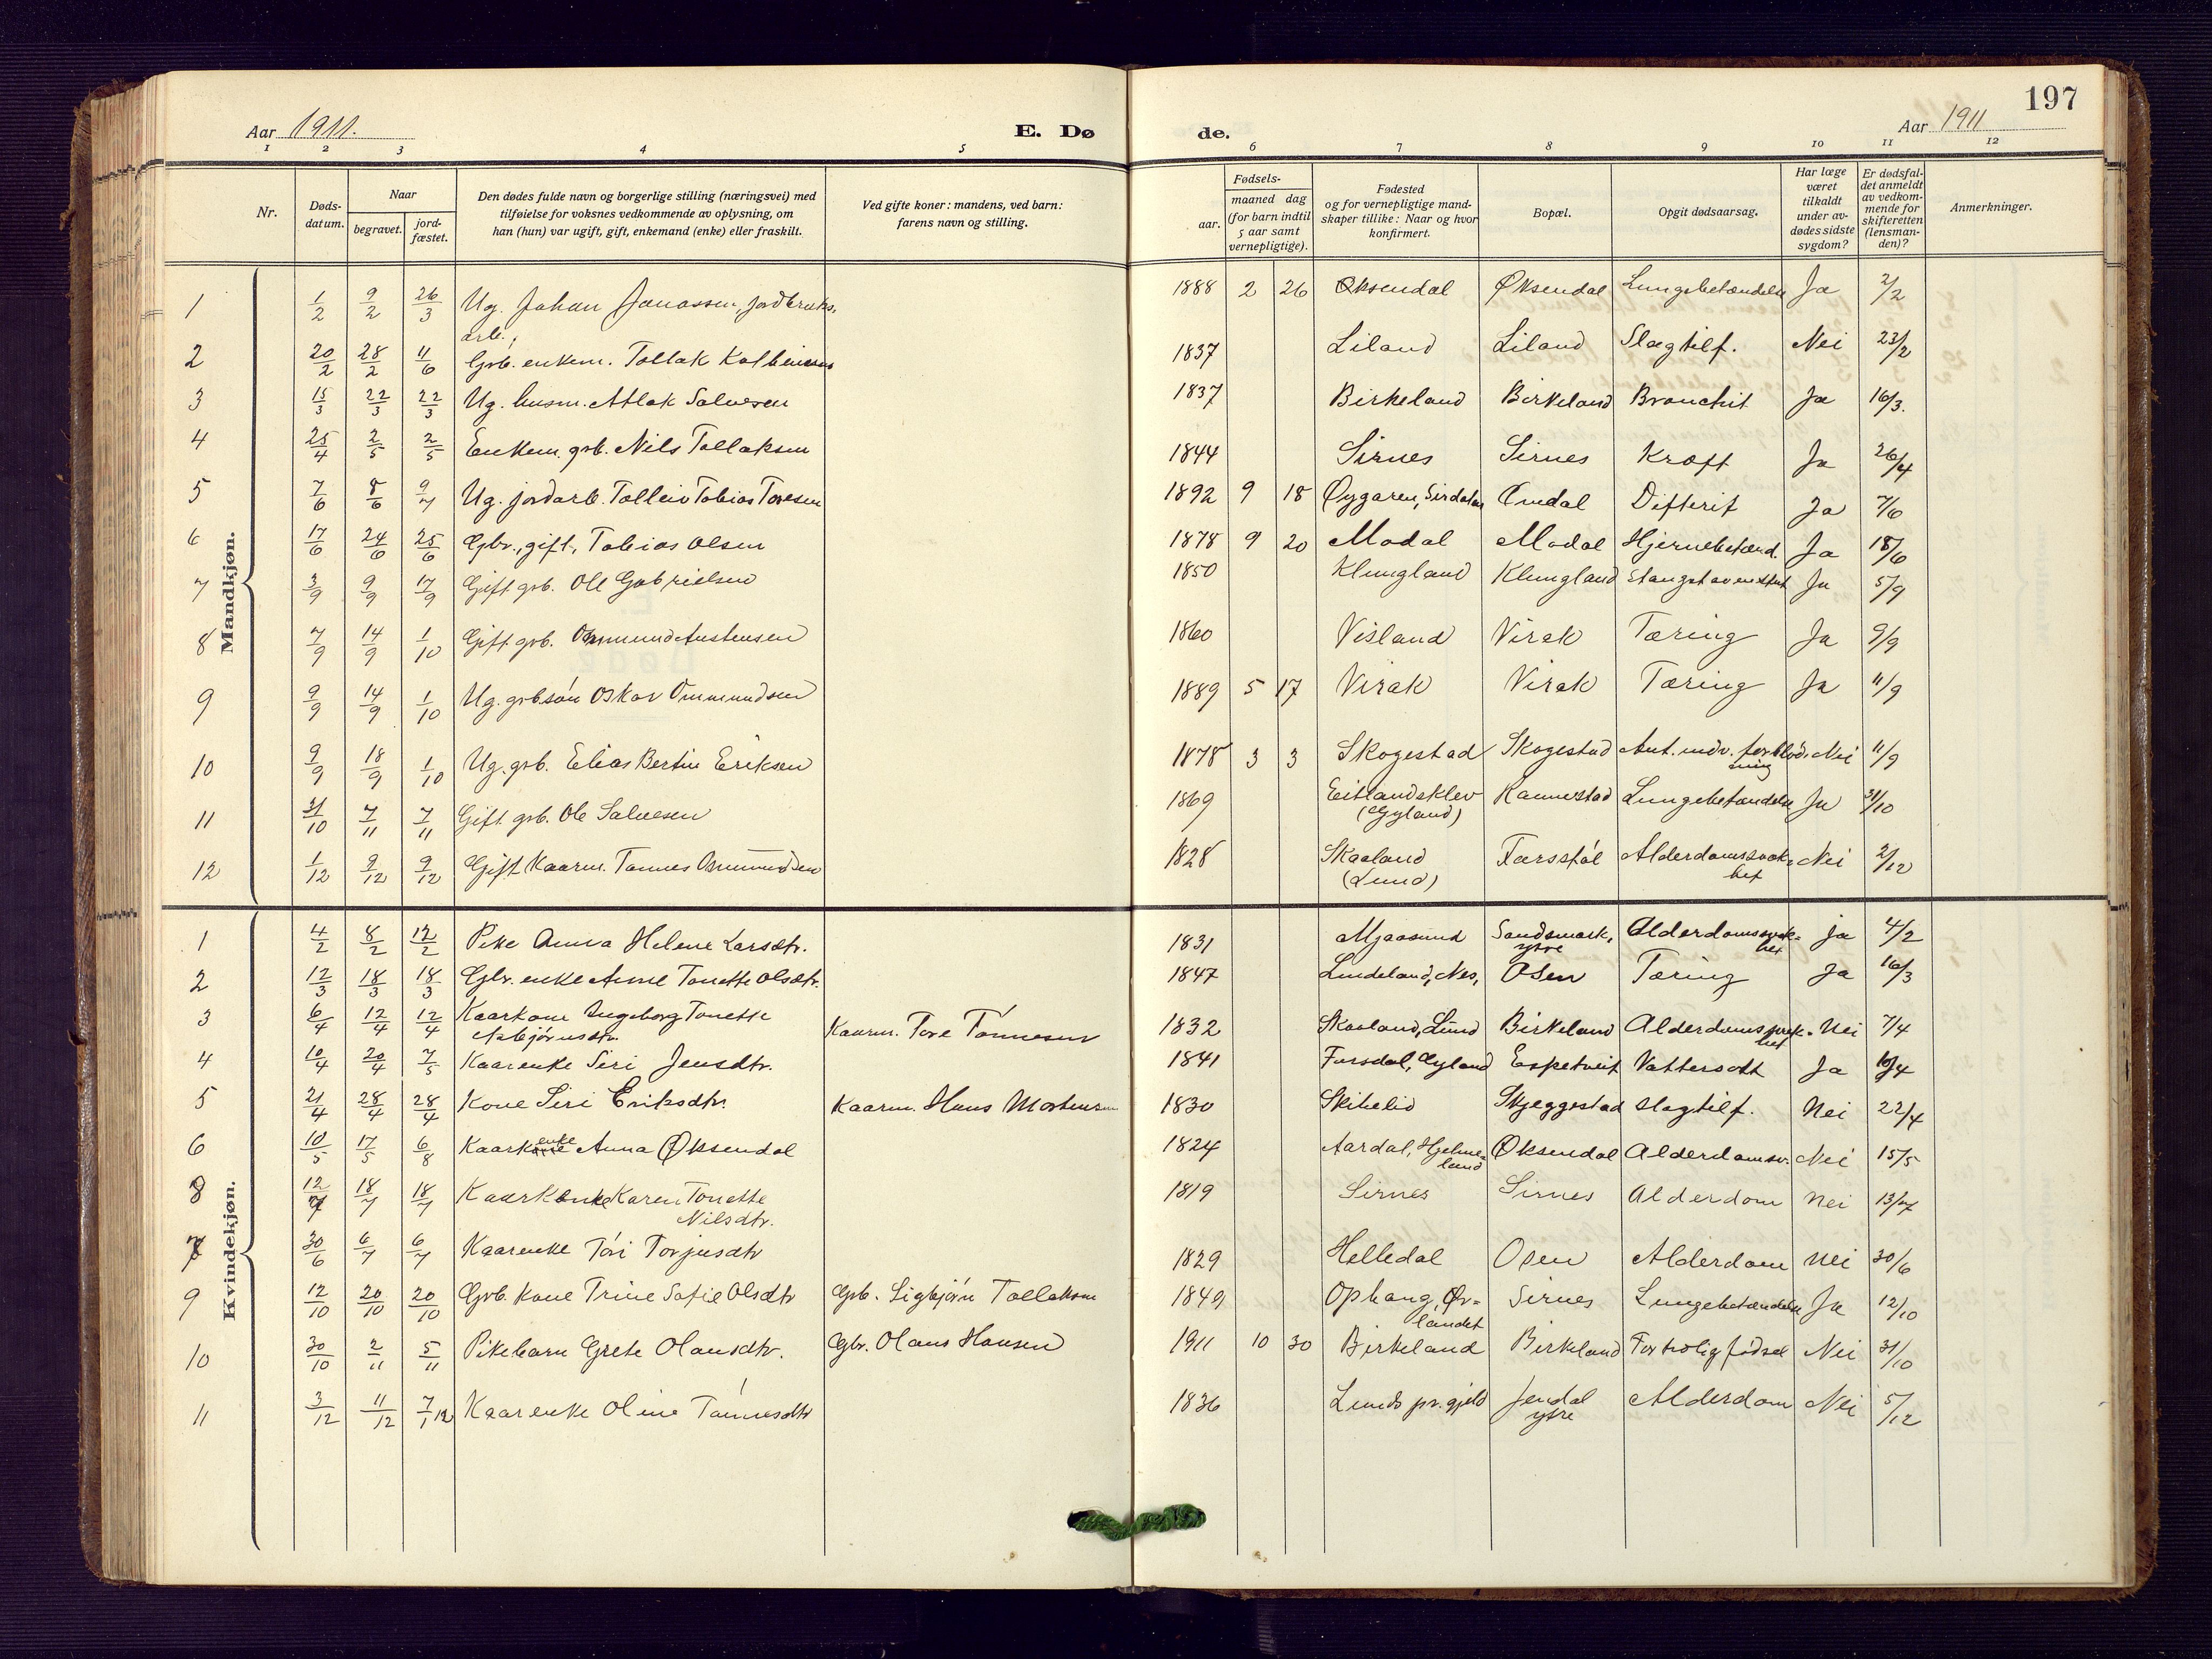 197
Aar 1911.
E. Dø
de.
Aar 1911
1 2 3 4 5 6 7 8 9 10 11 12
Nr.
Døds-
datum.
Naar
begravet.
jord-
fæstet.
Den dødes fulde navn og borgerlige stilling (næringsvei) med
tilføielse for voksnes vedkommende av oplysning, om
han (hun) var ugift, gift, enkemand (enke) eller fraskilt.
Ved gifte koner: mandens, ved barn:
farens navn og stilling.
Fødsels-
aar.
maaned dag
(for barn indtil
5 aar samt
vernepligtige).
Fødested
og for vernepligtige mand-
skaper tillike: Naar og hvor
konfirmert.
Bopæl.
Opgit dødsaarsag.
Har læge
været
tilkaldt
under av-
dødes sidste
sygdom?
Er dødsfal-
det anmeldt
av vedkom-
mende for
skifteretten
(lensman-
den)?
Anmerkninger.
Mandkjøn.
1 1/2 9/2 26/3 Ug. Johan Jonassen, jordbruks- 1888 2 26 Øksendal Øksendal Lungebetændelse Ja 2/2
arb.,
2 20/2 28/2 11/6 Grb. enkem. Tollak Kolbeinsen 1837 Liland Liland Slagtilf. Nei 23/2
3 15/3 22/3 22/3 Ug. husm. Atlak Salvesen 1837 Birkeland Birkeland Bronchit Ja 16/3.
4 25/4 2/5 2/5 Enkem. grb. Nils Tollaksen 1844 Sirnes Sirnes Kræft Ja 26/4
5 7/6 8/6 9/7 Ug. jordarb. Talleiv Tobias Toresen 1892 9 18 Øygaren, Sirdalen Øvedal Difterit Ja 7/6
6 17/6 24/6 25/6 Gbr., gift, Tobias Olsen 1878 9 20 Modal Modal Hjernebetænd. Ja 18/6
7 3/9 9/9 17/9 Gift grb. Ole Gabrielsen 1850 Klungland Klungland Ja 5/9
8 7/9 14/9 1/10 Gift grb. Ommund Austensen 1860 Visland Virak Tæring Ja 9/9
9 9/9 14/9 1/10 Ug. grbsøn Oskar Ommundsen 1889 5 17 Virak Virak Tæring Ja 11/9
10 9/9 18/9 1/10 Ug. grb. Elias Bertin Eriksen 1878 3 3 Skogestad Skogestad Ant. indv. forblød- Nei 11/9
ning
11 31/10 7/11 7/11 Gift grb. Ole Salvesen 1869 Eitlandsklev Kannestad Lungebetændelse Ja 31/10
(Gyland)
12 1/12 9/12 9/12 Gift Kaarm. Tønnes Ommundsen 1828 Skaaland Færsstøl Alderdomssvak- Nei 2/12
(Lund) het
Kvindekjøn.
1 4/2 8/2 12/2 Pike Anna Helene Larsdtr. 1831 Mjaasund Sandsmark, Alderdomssvak- Ja 4/2
ytre het
2 12/3 18/3 18/3 Gbr. enke Anne Tonette Olsdtr. 1847 Lindeland, Nes, Osen Tæring Ja 16/3
3 6/4 12/4 12/4 Kaarkone Ingeborg Tonette Kaarm. Tore Tønnesen 1832 Skaaland, Lund Birkeland Alderdomssvak- Nei 7/4
Asbjørnsdtr. het
4 10/4 20/4 7/5 Kaarenke Siri Jensdtr. 1841 Fursdal, Gyland Espetveit Vattersott Ja 10/4
5 21/4 28/4 28/4 Kone Siri Eriksdtr. Kaarm. Hans Mortensen 1830 Skibelid Skjeggestad Slagtilf. Nei 22/4
6 10/5 17/5 6/8 Kaarkone enke Anna Øksendal 1824 Aardal, Hjelme- Øksendal Alderdomsv. Nei 15/5
land
8 12/7 18/7 18/7 Kaarkenke Karen Tonette 1819 Sirnes Sirnes Alderdom Nei 13/7
Nilsdtr.
7 30/6 6/7 6/7 Kaarenke Tøri Torjusdtr 1829 Helledal Osen Alderdom Nei 30/6
9 12/10 20/10 20/10 Grb. kone Trine Sofie Olsdtr Grb. Sigbjørn Tollaksen 1849 Ophaug, Ør- Sirnes Lungebetændelse Ja 12/10
landet
10 30/10 2/11 5/11 Pikebarn Grete Olausdtr. Gbr. Olaus Hansen 1911 10 30 Birkeland Birkeland For trolig fødsel Nei 31/10
11 3/12 11/12 7/1 12 Kaarenke Oline Tønnesdtr 1836 Lunds pr.gjeld Jendal Alderdom Nei 5/12
ytre